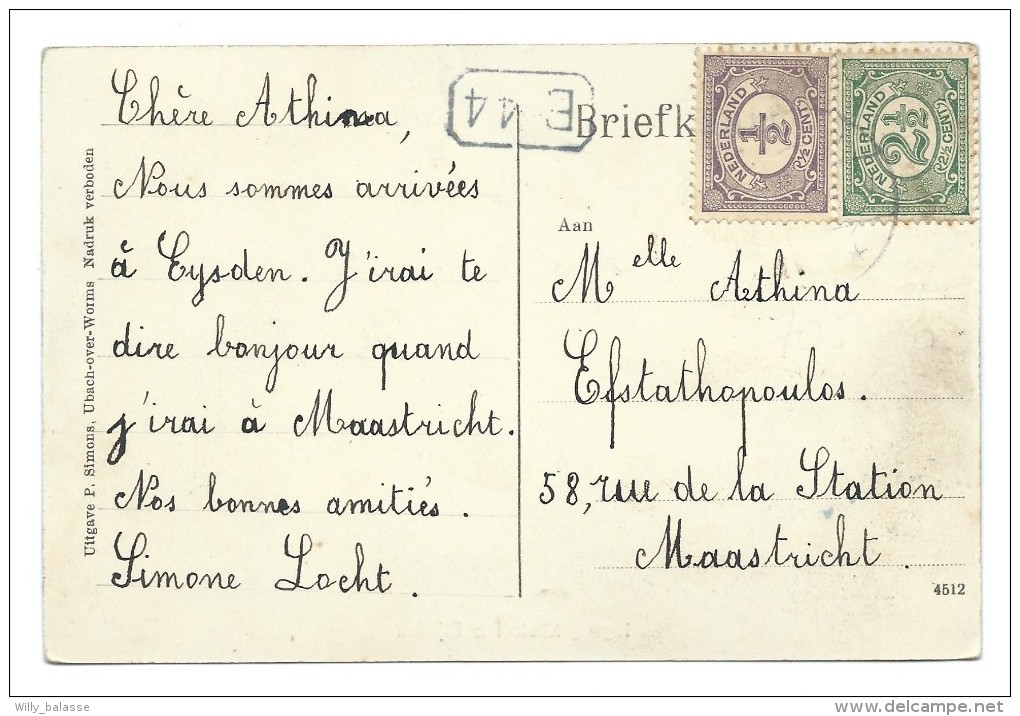 Chère Athina,
Nous sommes arrivées
à Eysden. J'irai te
dire bonjour quand
j'irai à Maastricht.
Nos bonnes amitiés.
Simone Locht.
Uitgave P. Simons, Ubach-over-Worms Nadruk verboden
E 14
Briefk
NEDERLAND
½
(½ CENT)
NEDERLAND
2½
(2½ CENT)
Aan
Melle Athina
Efstathopoulos.
58, rue de la Station
Maastricht.
4512
Willy_balasse
delcampe.net